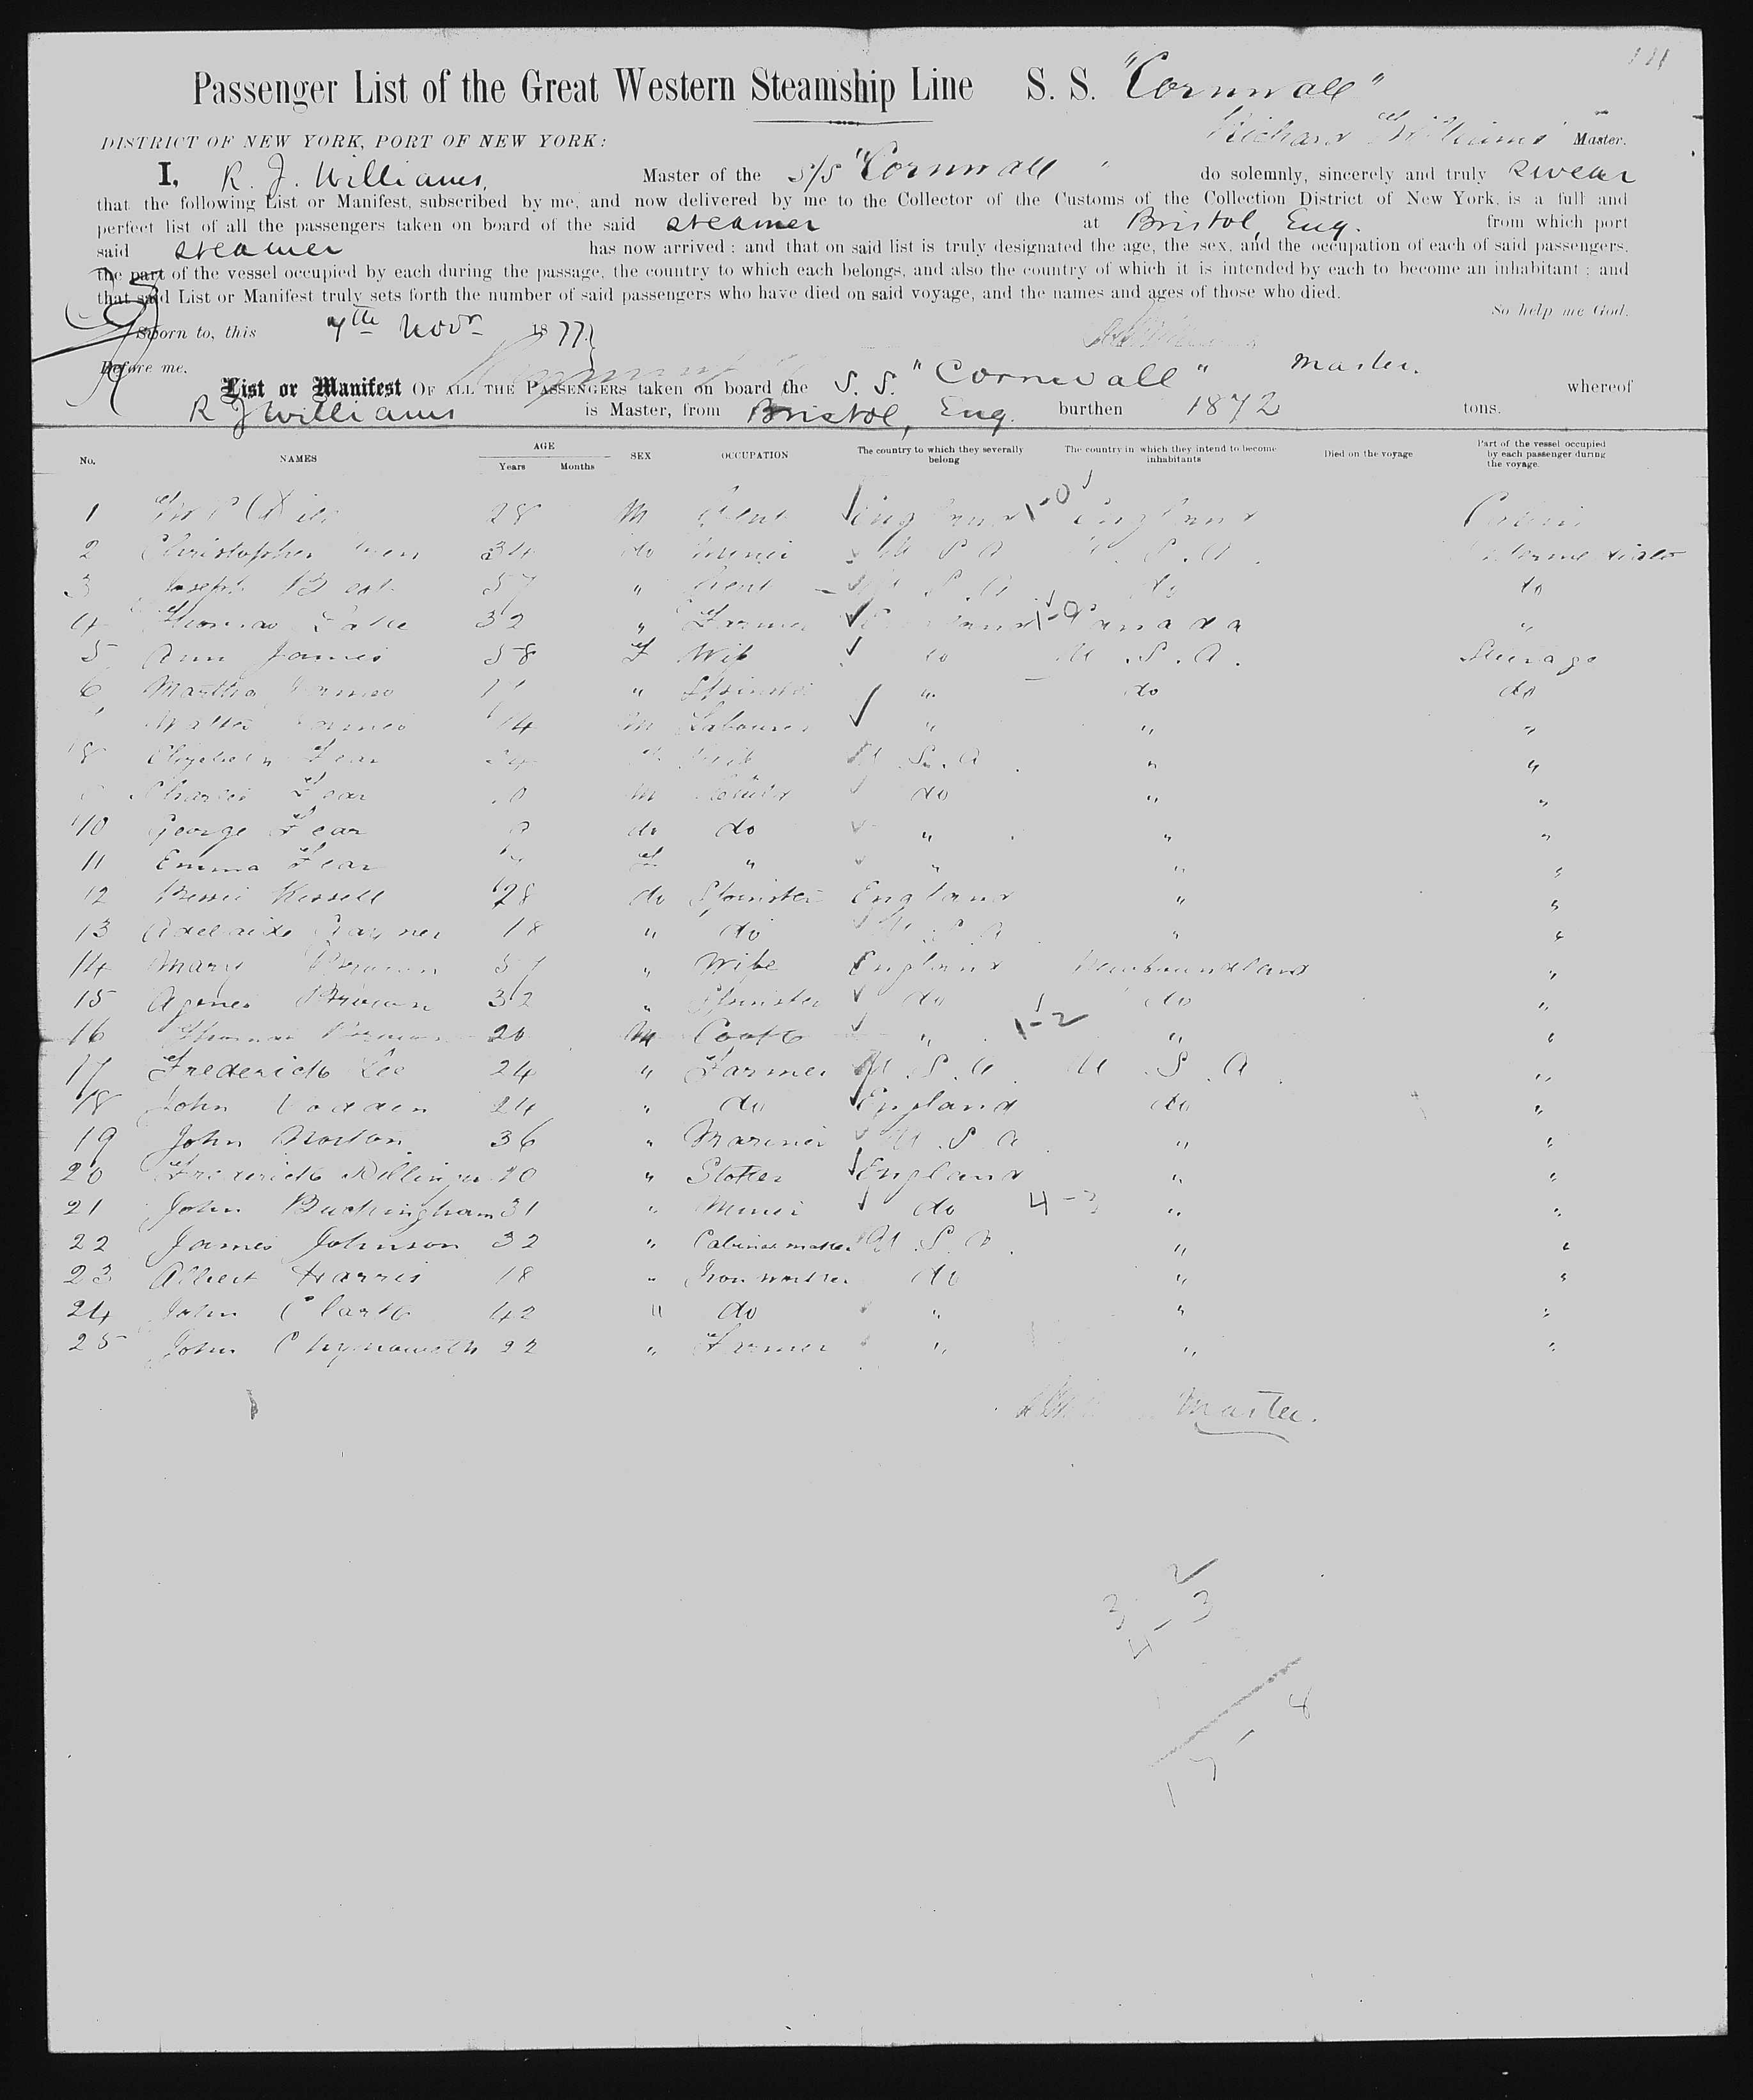 111
Passenger List of the Great Western Steamship Line S. S. "Cornwall"
DISTRICT OF NEW YORK, PORT OF NEW YORK: Richard Williams Master.
I, R. J. Williams, Master of the S/S "Cornwall" do solemnly, sincerely and truly swear
that the following List or Manifest, subscribed by me, and now delivered by me to the Collector of the Customs of the Collection District of New York, is a full and
perfect list of all the passengers taken on board of the said steamer at Bristol, Eng. from which port
said steamer has now arrived: and that on said list is truly designated the age, the sex, and the occupation of each of said passengers,
the part of the vessel occupied by each during the passage, the country to which each belongs, and also the country of which it is intended by each to become an inhabitant; and
that said List or Manifest truly sets forth the number of said passengers who have died on said voyage, and the names and ages of those who died.
So help me God.
Sworn to, this 7th Novr 1877.
Before me.
List or Manifest OF ALL THE PASSENGERS taken on board the S. S. "Cornwall" Master. whereof
R J Williams is Master, from Bristol, Eng. burthen 1872 tons.
No. NAMES AGE Years Months SEX OCCUPATION The country to which they severally belong The country in which they intend to become inhabitants Died on the voyage Part of the vessel occupied by each passenger during the voyage.
1 28 M England 1-0 England Cabin
2 Christopher 34 do Miner U.S.A U.S.A. Intermediate
3 Joseph 57 " U.S.A do do
4 Thomas 32 " Farmer England 1-0 Canada "
5 Ann James 58 F Wife do U.S.A. Steerage
6 Martha James " Spinster " do do
Walter James 14 M Labourer " " "
8 Elizabeth Fear Wife U.S.A. " "
Charles Fear M Child do " "
10 George Fear do do " " "
11 Emma Fear F " " " "
12 Bessie Kessell 28 do Spinster England " "
13 Adelaide 18 " do U.S.A " "
14 Mary Brown 57 " Wife England Newfoundland "
15 Agnes Brown 32 " Spinster do do "
16 Thomas Brown 20 M Cook " 1-2 " "
17 Frederick Lee 24 " Farmer U.S.A. U.S.A. "
18 John Vodden 24 " do England do "
19 John Norton 36 " Mariner U.S.A " "
20 Frederick " Stoker England " "
21 John Buckingham 31 " Miner do 4-3 " "
22 James Johnson 32 " Cabinet maker U.S.A. " "
23 Albert Harris 18 " Iron worker do " "
24 John Clark 42 " do " " "
25 John Chynoweth 22 " Farmer " " "
Master.
2
3
4-3
17-8